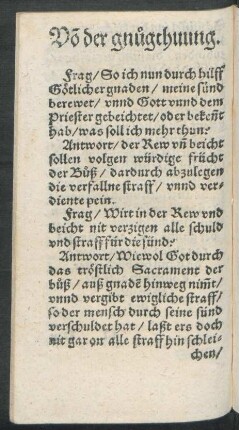 Võ der gnůgthuung.
Frag/ So ich nun durch hilff
Götlicher gnaden/ meine sünd
berewet/ vnnd Gott vnnd dem
Priester gebeichtet/ oder bekeñt
hab/ was soll ich mehr thun?
Antwort/ der Rew vñ beicht
sollen volgen würdige frücht
der Büß/ dardurch abzulegen
die verfallne straff/ vnnd ver-
diente pein.
Frag/ Wirt in der Rew vnd
beicht nit verzigen alle schuld
vnd straff für die sünd?
Antwort/ Wiewol Got durch
das tröstlich Sacrament der
büß/ auß gnadẽ hinweg nim̃t/
vnnd vergibt ewigliche straff/
so der mensch durch seine sünd
verschuldet hat/ laßt ers doch
nit gar on alle straff hin schlei-
chen/